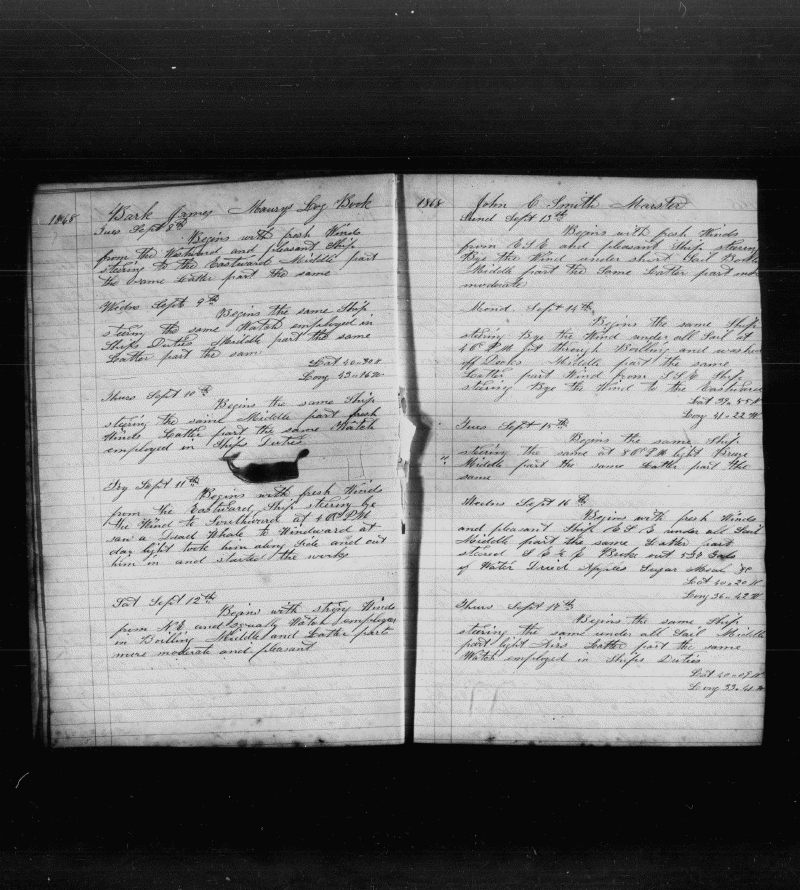 1868 Bark James Maurys Log Book
Tues Sept 8th
Begins with fresh Winds
from the Westward and pleasant Ship
steering to the Eastward Middle part
the same Latter part the same
Wedns Sept 9th
Begins the same Ship
steering the same Watch employed in
Ships Duties Middle part the same
Latter part the same
Lat 40=30 N
Long 43=16 W
Thurs Sept 10th
Begins the same Ship
steering the same Middle part fresh
Winds Latter part the same Watch
employed in Ships Duties
Fry Sept 11th
Begins with fresh Winds
from the Eastward Ship steering bye
the Wind to Southward at 4 OC P M
saw a Dead Whale to Windward at
day light took him along Side and cut
him in and started the works
Sat Sept 12th
Begins with strong Winds
from N.E. and Squaly Watch employed
in Boilling Middle and Latter parts
more moderate and pleasant
1868 John C Smith Marster
Sund Sept 13th
Begins with fresh Winds
from E.S.E and pleasant Ship steering
Bye the Wind under short Sail
Middle part the Same Latter part more
moderate
Mond Sept 14th
Begins the same Ship
steering Bye the Wind under all Sail at
4 OC P M got through Boilling and washed
off Decks Middle part the same
Latter part Wind from S.S.E Ship
steering Bye the Wind to the Eastward
Lat 39=55 N
Long 41=22 W
Tues Sept 15th
Begins the same Ship
steering the same at 8 OC P M light Breze
Middle part the same Latter part the
same
Wedns Sept 16th
Begins with fresh Winds
and pleasant Ship E.S.E under all Sail
Middle part the same Latter part
stered S.E & E Broke out
of Water Dried Apples Sugar Meal &c
Lat 40=20 N
Long 36=42 W
Thurs Sept 17th
Begins the same Ship
steering the same under all Sail Middle
part light Airs Latter part the same
Watch employed in Ships Duties
Lat 40=09 N
Long 33=41 W